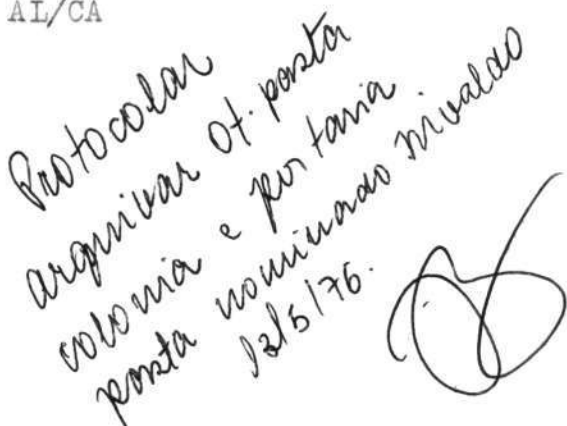 AL/CA
Protocolar
arquivar Of. pasta
colonia e portaria
pasta nominado Nivaldo
12/5/76.